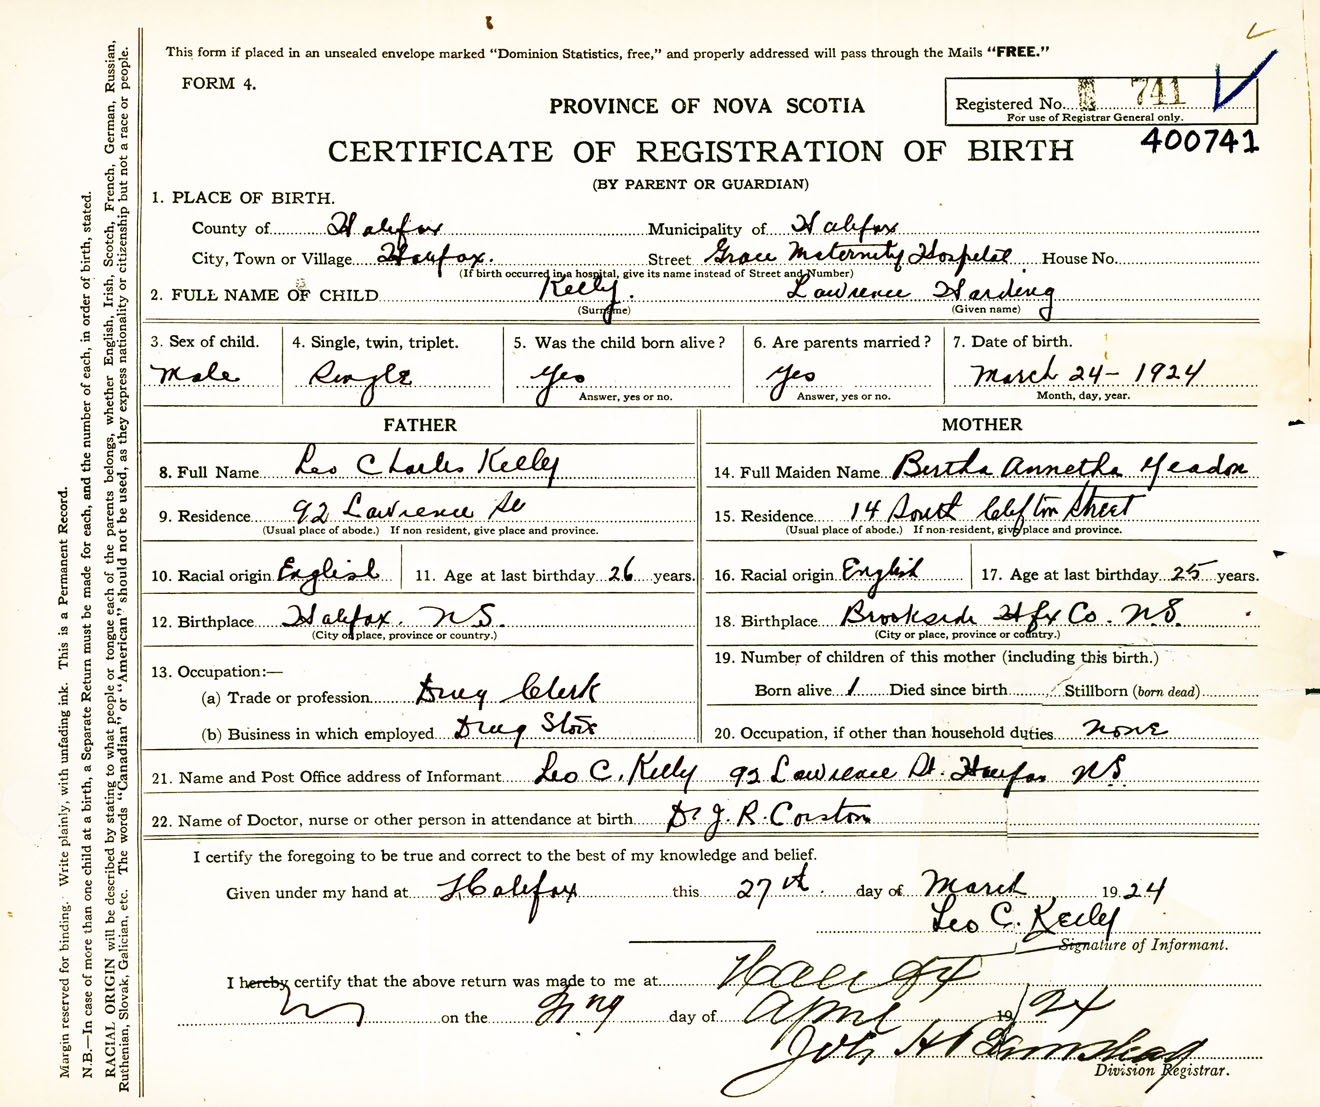 This form if placed in an unsealed envelope marked "Dominion Statistics, free," and properly addressed will pass through the Mails "FREE."
FORM 4.
PROVINCE OF NOVA SCOTIA
Registered No. 741
For use of Registrar General only.
400741
CERTIFICATE OF REGISTRATION OF BIRTH
(BY PARENT OR GUARDIAN)
1. PLACE OF BIRTH.
County of Halifax Municipality of Halifax
City, Town or Village Halifax. Street Grace Maternity Hospital House No.
(If birth occurred in a hospital, give its name instead of Street and Number)
2. FULL NAME OF CHILD Kelly. Lawrence Harding
(Surname) (Given name)
3. Sex of child. 4. Single, twin, triplet. 5. Was the child born alive? 6. Are parents married? 7. Date of birth.
Male Single Yes Yes March 24 - 1924
Answer, yes or no. Answer, yes or no. Month, day, year.
FATHER
8. Full Name Leo Charles Kelly
9. Residence 92 Lawrence St
(Usual place of abode.) If non resident, give place and province.
10. Racial origin English 11. Age at last birthday 26 years.
12. Birthplace Halifax. N.S.
(City or place, province or country.)
13. Occupation:—
(a) Trade or profession Drug Clerk
(b) Business in which employed Drug Store
MOTHER
14. Full Maiden Name Bertha Annetha Yeadon
15. Residence 14 South Clifton Street
(Usual place of abode.) If non-resident, give place and province.
16. Racial origin English 17. Age at last birthday 25 years.
18. Birthplace Brookside Hfx Co. N.S.
(City or place, province or country.)
19. Number of children of this mother (including this birth.)
Born alive 1 Died since birth Stillborn (born dead)
20. Occupation, if other than household duties None
21. Name and Post Office address of Informant Leo C. Kelly 92 Lawrence St. Halifax N.S.
22. Name of Doctor, nurse or other person in attendance at birth Dr J. R. Corston
I certify the foregoing to be true and correct to the best of my knowledge and belief.
Given under my hand at Halifax this 27th. day of March 1924
Leo C. Kelly
Signature of Informant.
I hereby certify that the above return was made to me at Halifax
on the 2nd day of April 1924
Division Registrar.
Margin reserved for binding. Write plainly, with unfading ink. This is a Permanent Record.
N.B.—In case of more than one child at a birth, a Separate Return must be made for each, and the number of each, in order of birth, stated.
RACIAL ORIGIN will be described by stating to what people or tongue each of the parents belongs, whether English, Irish, Scotch, French, German, Russian,
Ruthenian, Slovak, Galician, etc. The words "Canadian" or "American" should not be used, as they express nationality or citizenship but not a race or people.